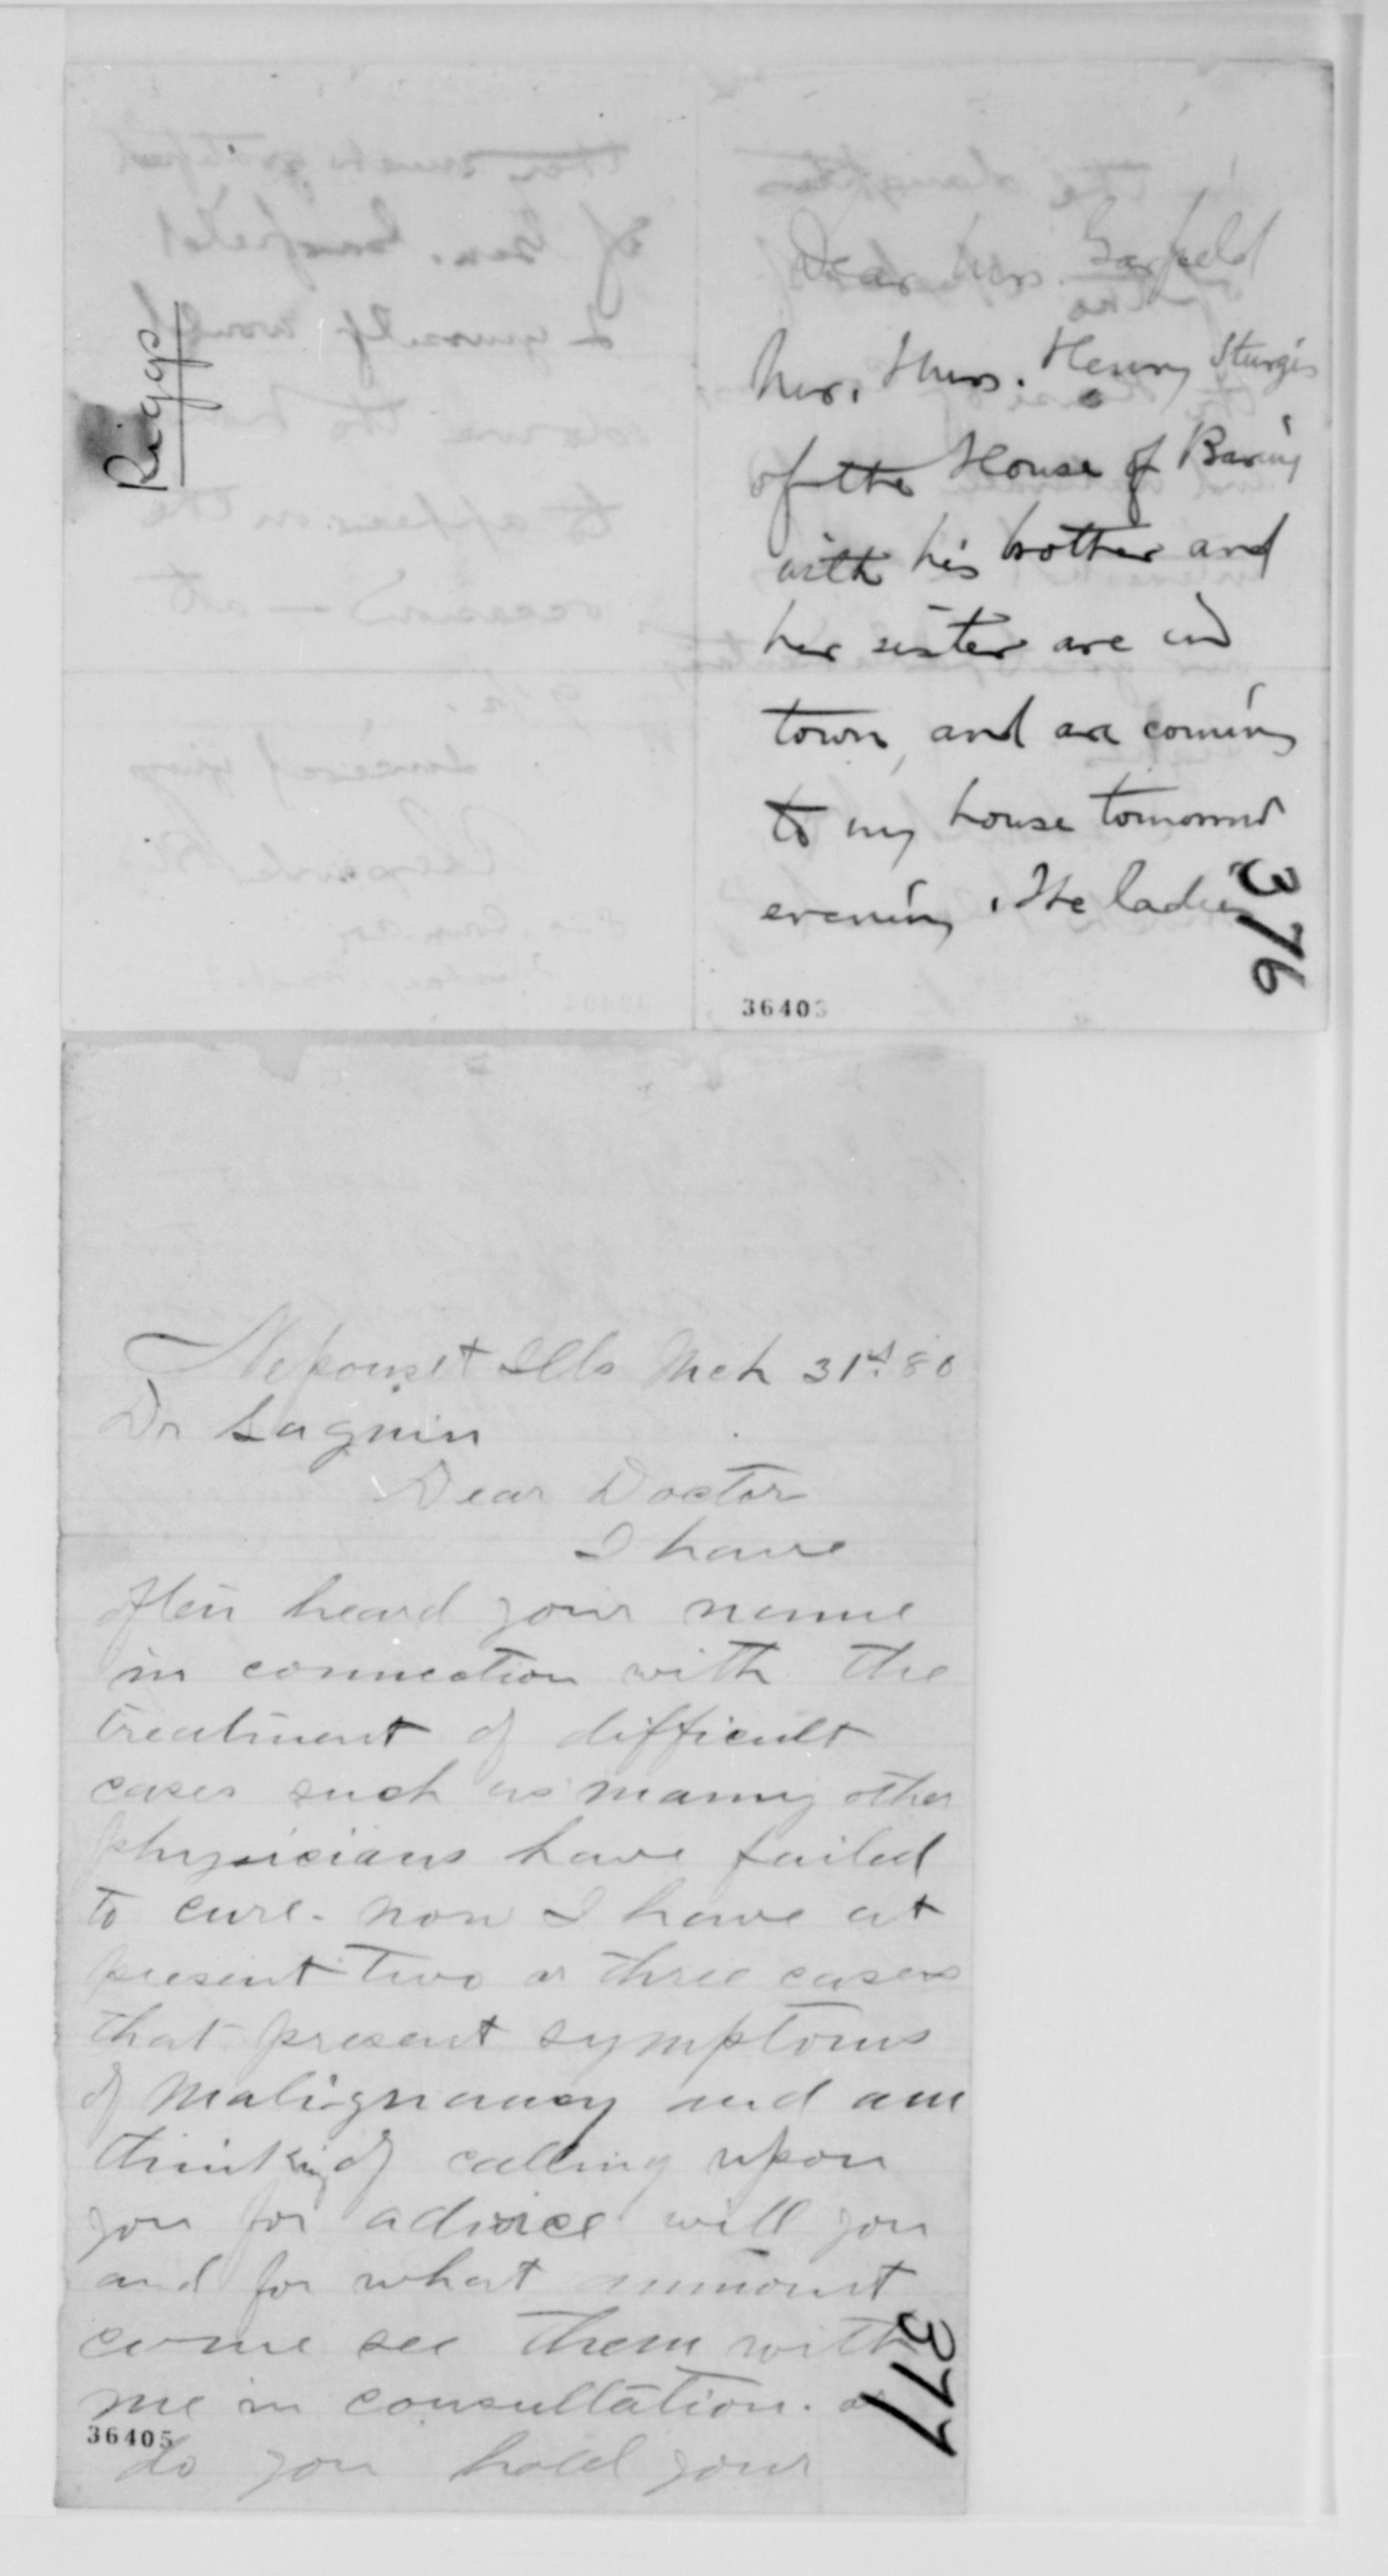 Riggs
Dear Mrs. Garfield
Mr. Henry Sturgis
of the House of Baring
with his brother and
her sister are in
town, and are coming
to my house tomorrow
evening. The ladies
376
36403
Neponset Ills Mch 31st 80
Dr
Dear Doctor
I have
often heard your name
in connection with the
treatment of difficult
cases such as many other
physicians have failed
to cure. now I have at
present two or three cases
that present symptoms
of malignancy and am
thinking of calling upon
you for advice will you
and for what ammount
come see them with
me in consultation. or
377
36405
do you hold your